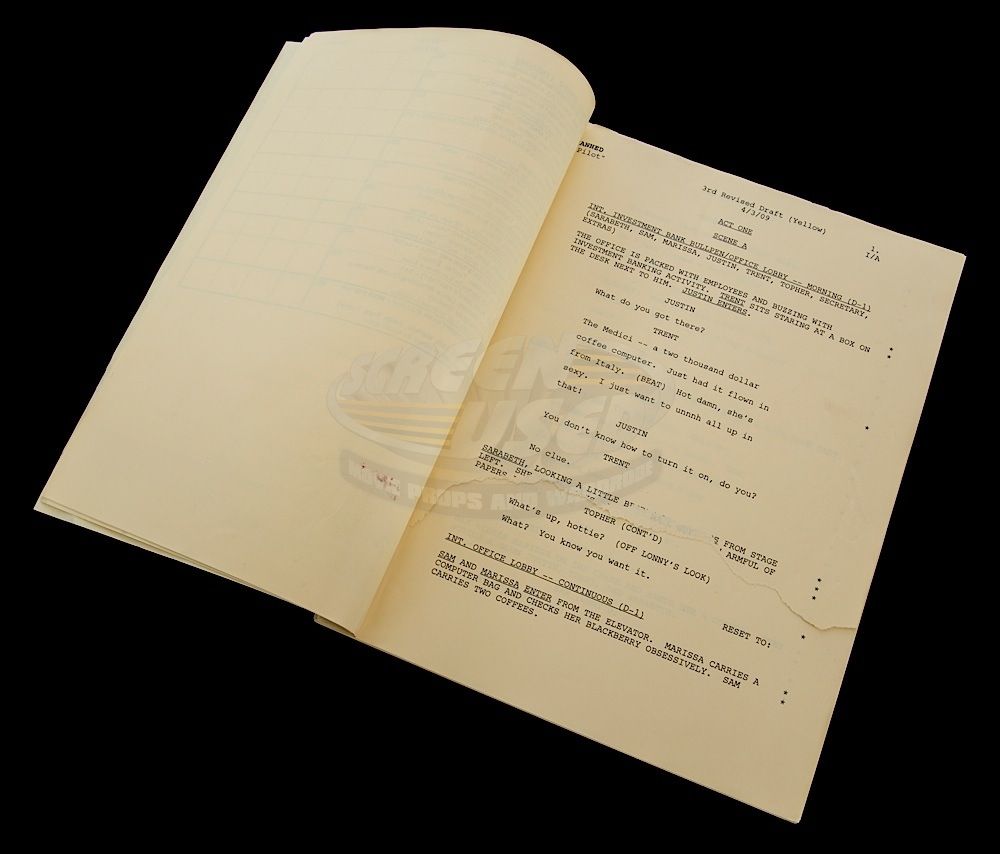 ANNED
Pilot"
3rd Revised Draft (Yellow)
4/3/09
1.
I/A
ACT ONE
SCENE A
INT. INVESTMENT BANK BULLPEN/OFFICE LOBBY -- MORNING (D-1)
(SARABETH, SAM, MARISSA, JUSTIN, TRENT, TOPHER, SECRETARY,
EXTRAS)
THE OFFICE IS PACKED WITH EMPLOYEES AND BUZZING WITH
INVESTMENT BANKING ACTIVITY. TRENT SITS STARING AT A BOX ON *
THE DESK NEXT TO HIM. JUSTIN ENTERS. *
JUSTIN
What do you got there?
TRENT
The Medici -- a two thousand dollar
coffee computer. Just had it flown in
from Italy. (BEAT) Hot damn, she's
sexy. I just want to unnnh all up in *
that!
JUSTIN
You don't know how to turn it on, do you?
TRENT
No clue.
SARABETH, LOOKING A LITTLE FROM STAGE
LEFT. ARMFUL OF
PAPERS
TOPHER (CONT'D) *
What's up, hottie? (OFF LONNY'S LOOK) *
What? You know you want it. *
RESET TO: *
INT. OFFICE LOBBY -- CONTINUOUS (D-1)
SAM AND MARISSA ENTER FROM THE ELEVATOR. MARISSA CARRIES A
COMPUTER BAG AND CHECKS HER BLACKBERRY OBSESSIVELY. SAM *
CARRIES TWO COFFEES. *
SCREEN
USED
PROPS AND WARDROBE